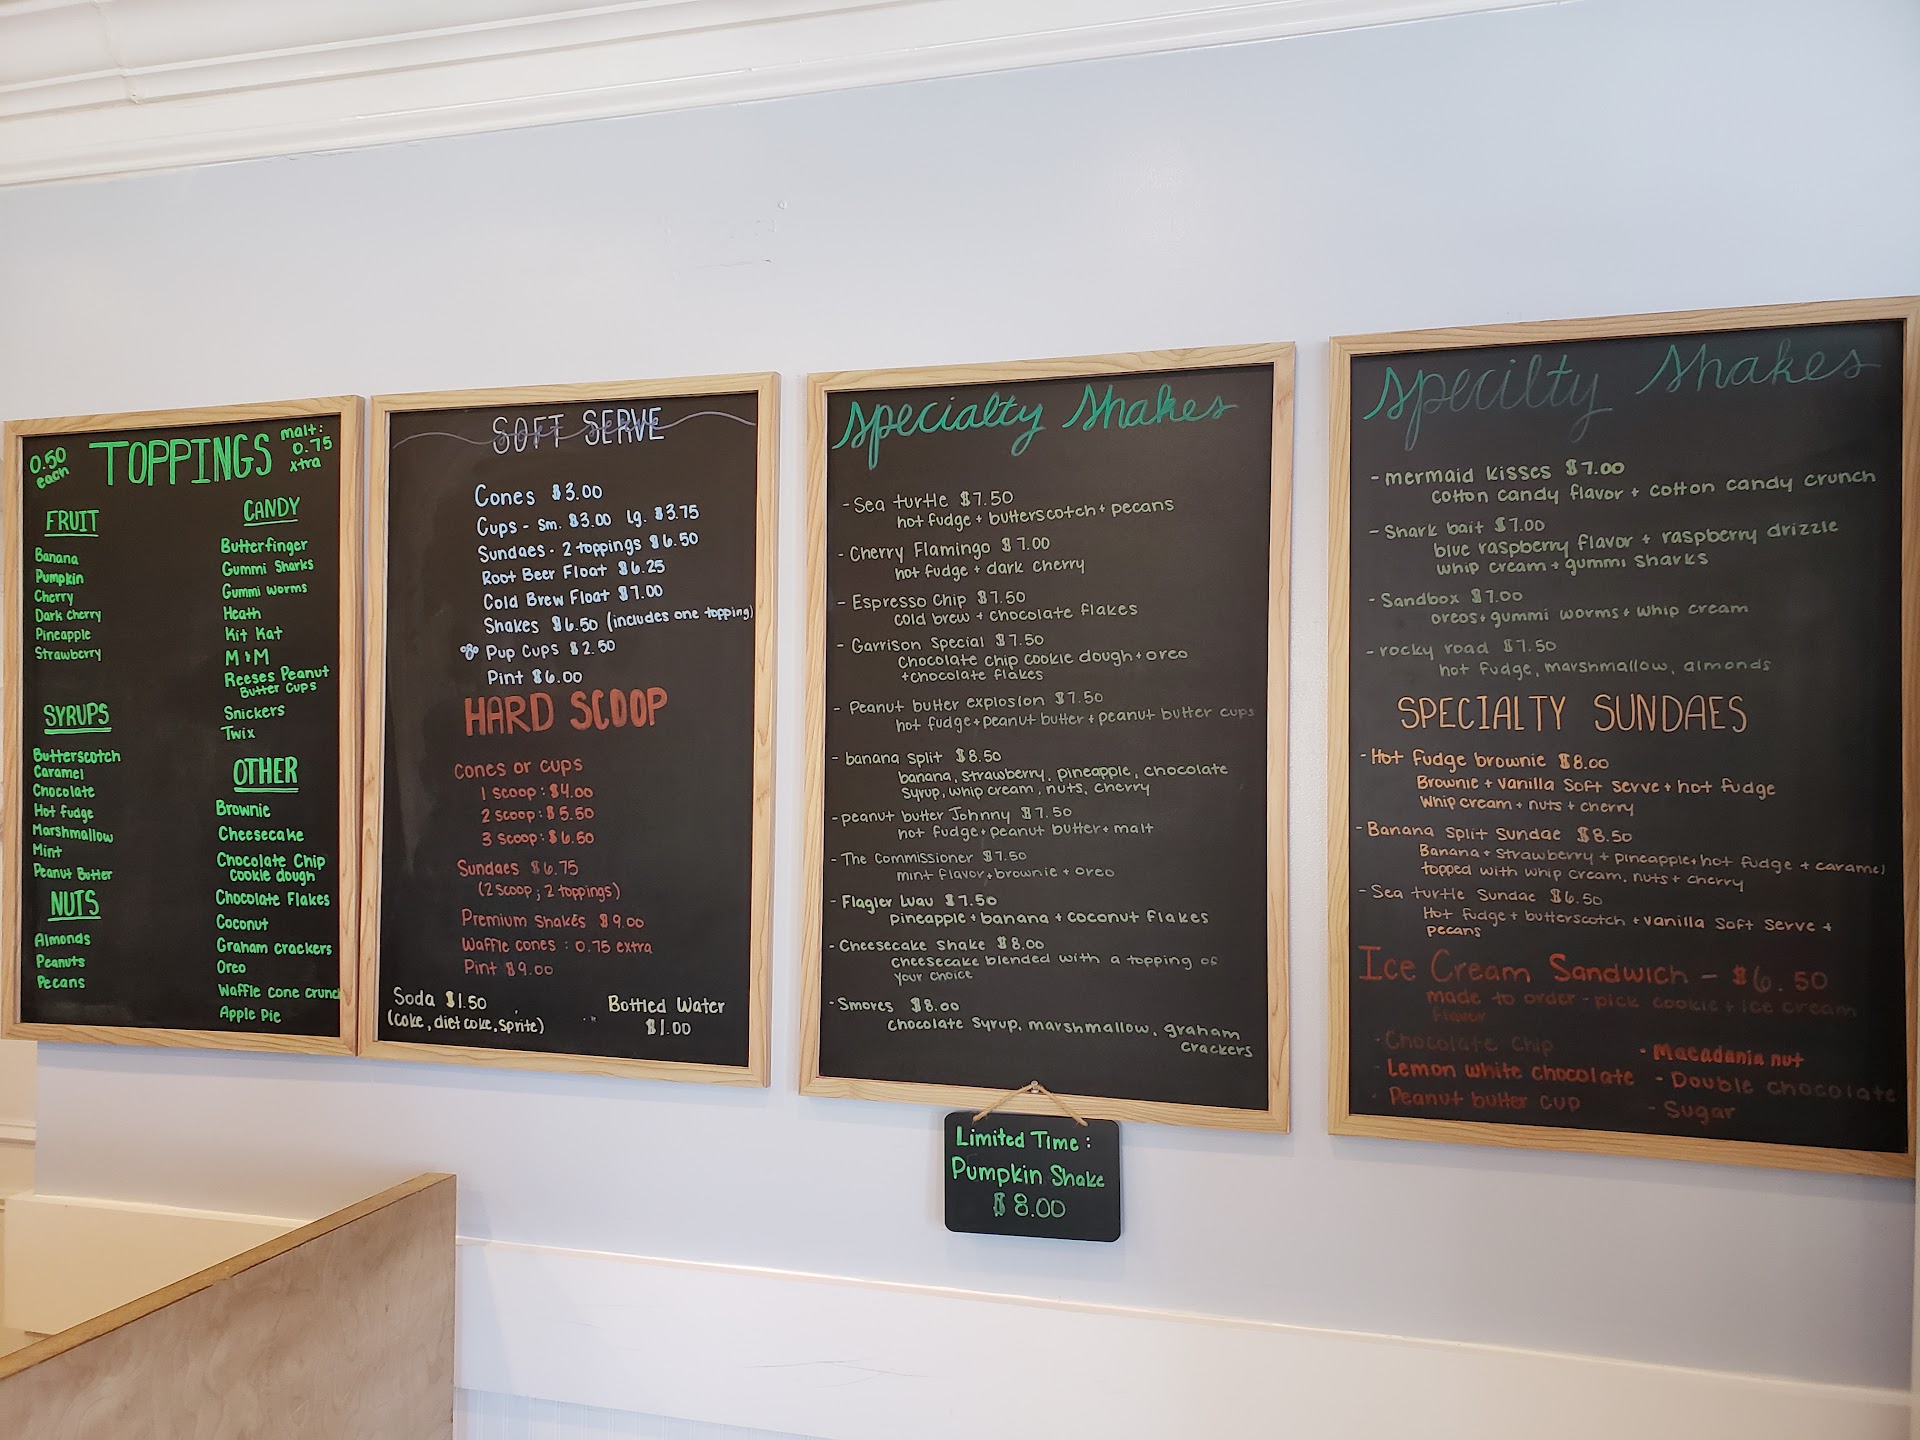 0.50
each
TOPPINGS
malt:
0.75
xtra
FRUIT
Banana
Pumpkin
Cherry
Dark Cherry
Pineapple
Strawberry
SYRUPS
Butterscotch
Caramel
Chocolate
Hot fudge
Marshmallow
Mint
Peanut Butter
NUTS
Almonds
Peanuts
Pecans
CANDY
Butterfinger
Gummi Sharks
Gummi worms
Heath
Kit Kat
M&M
Reeses Peanut
Butter Cups
Snickers
Twix
OTHER
Brownie
Cheesecake
Chocolate Chip
cookie dough
Chocolate Flakes
Coconut
Graham crackers
Oreo
Waffle cone crunch
Apple Pie
SOFT SERVE
Cones $3.00
Cups - sm. $3.00 lg. $3.75
Sundaes - 2 toppings $6.50
Root Beer Float $6.25
Cold Brew Float $7.00
Shakes $6.50 (includes one topping)
Pup Cups $2.50
Pint $6.00
HARD SCOOP
Cones or cups
1 scoop: $4.00
2 scoop: $5.50
3 scoop: $6.50
Sundaes $6.75
(2 scoop; 2 toppings)
Premium Shakes $9.00
Waffle cones: 0.75 extra
Pint $9.00
Soda $1.50
(coke, diet coke, sprite)
Bottled Water
$1.00
Specialty Shakes
- Sea turtle $7.50
hot fudge + butterscotch + pecans
- Cherry Flamingo $7.00
hot fudge + dark cherry
- Espresso Chip $7.50
cold brew + chocolate flakes
- Garrison Special $7.50
Chocolate chip cookie dough + oreo
+ chocolate flakes
- Peanut butter explosion $7.50
hot fudge + peanut butter + peanut butter cups
- banana split $8.50
banana, strawberry, pineapple, chocolate
syrup, whip cream, nuts, cherry
- peanut butter Johnny $7.50
hot fudge + peanut butter + malt
- The Commissioner $7.50
mint flavor + brownie + oreo
- Flagler Luau $7.50
pineapple + banana + coconut flakes
- Cheesecake Shake $8.00
cheesecake blended with a topping of
your choice
- Smores $8.00
chocolate syrup, marshmallow, graham
crackers
Limited Time:
Pumpkin Shake
$8.00
Specilty Shakes
- mermaid kisses $7.00
cotton candy flavor + cotton candy crunch
- Shark bait $7.00
blue raspberry flavor + raspberry drizzle
whip cream + gummi sharks
- Sandbox $7.00
oreos + gummi worms + whip cream
- rocky road $7.50
hot fudge, marshmallow, almonds
SPECIALTY SUNDAES
- Hot fudge brownie $8.00
Brownie + vanilla soft serve + hot fudge
Whip cream + nuts + cherry
- Banana Split Sundae $8.50
Banana + strawberry + pineapple + hot fudge + caramel
topped with whip cream, nuts + cherry
- Sea turtle Sundae $6.50
Hot fudge + butterscotch + vanilla soft serve +
pecans
Ice Cream Sandwich - $6.50
made to order - pick cookie + ice cream
flavor
- Chocolate chip
- Lemon white chocolate
- Peanut butter cup
- Macadania nut
- Double chocolate
- Sugar